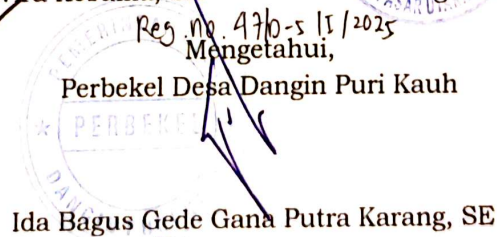 Reg. no. 470-5 /I/2025
Mengetahui,
Perbekel Desa Dangin Puri Kauh
PERBEKEL
Ida Bagus Gede Gana Putra Karang, SE